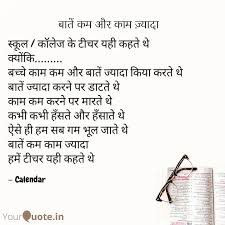 बातें कम और काम ज़्यादा
स्कूल / कॉलेज के टीचर यही कहते थे
क्योंकि.........
बच्चे काम कम और बातें ज्यादा किया करते थे
बातें ज्यादा करने पर डाटते थे
काम कम करने पर मारते थे
कभी कभी हँसते और हँसाते थे
ऐसे ही हम सब गम भूल जाते थे
बातें कम काम ज्यादा
हमें टीचर यही कहते थे
- Calendar
YourQuote.in